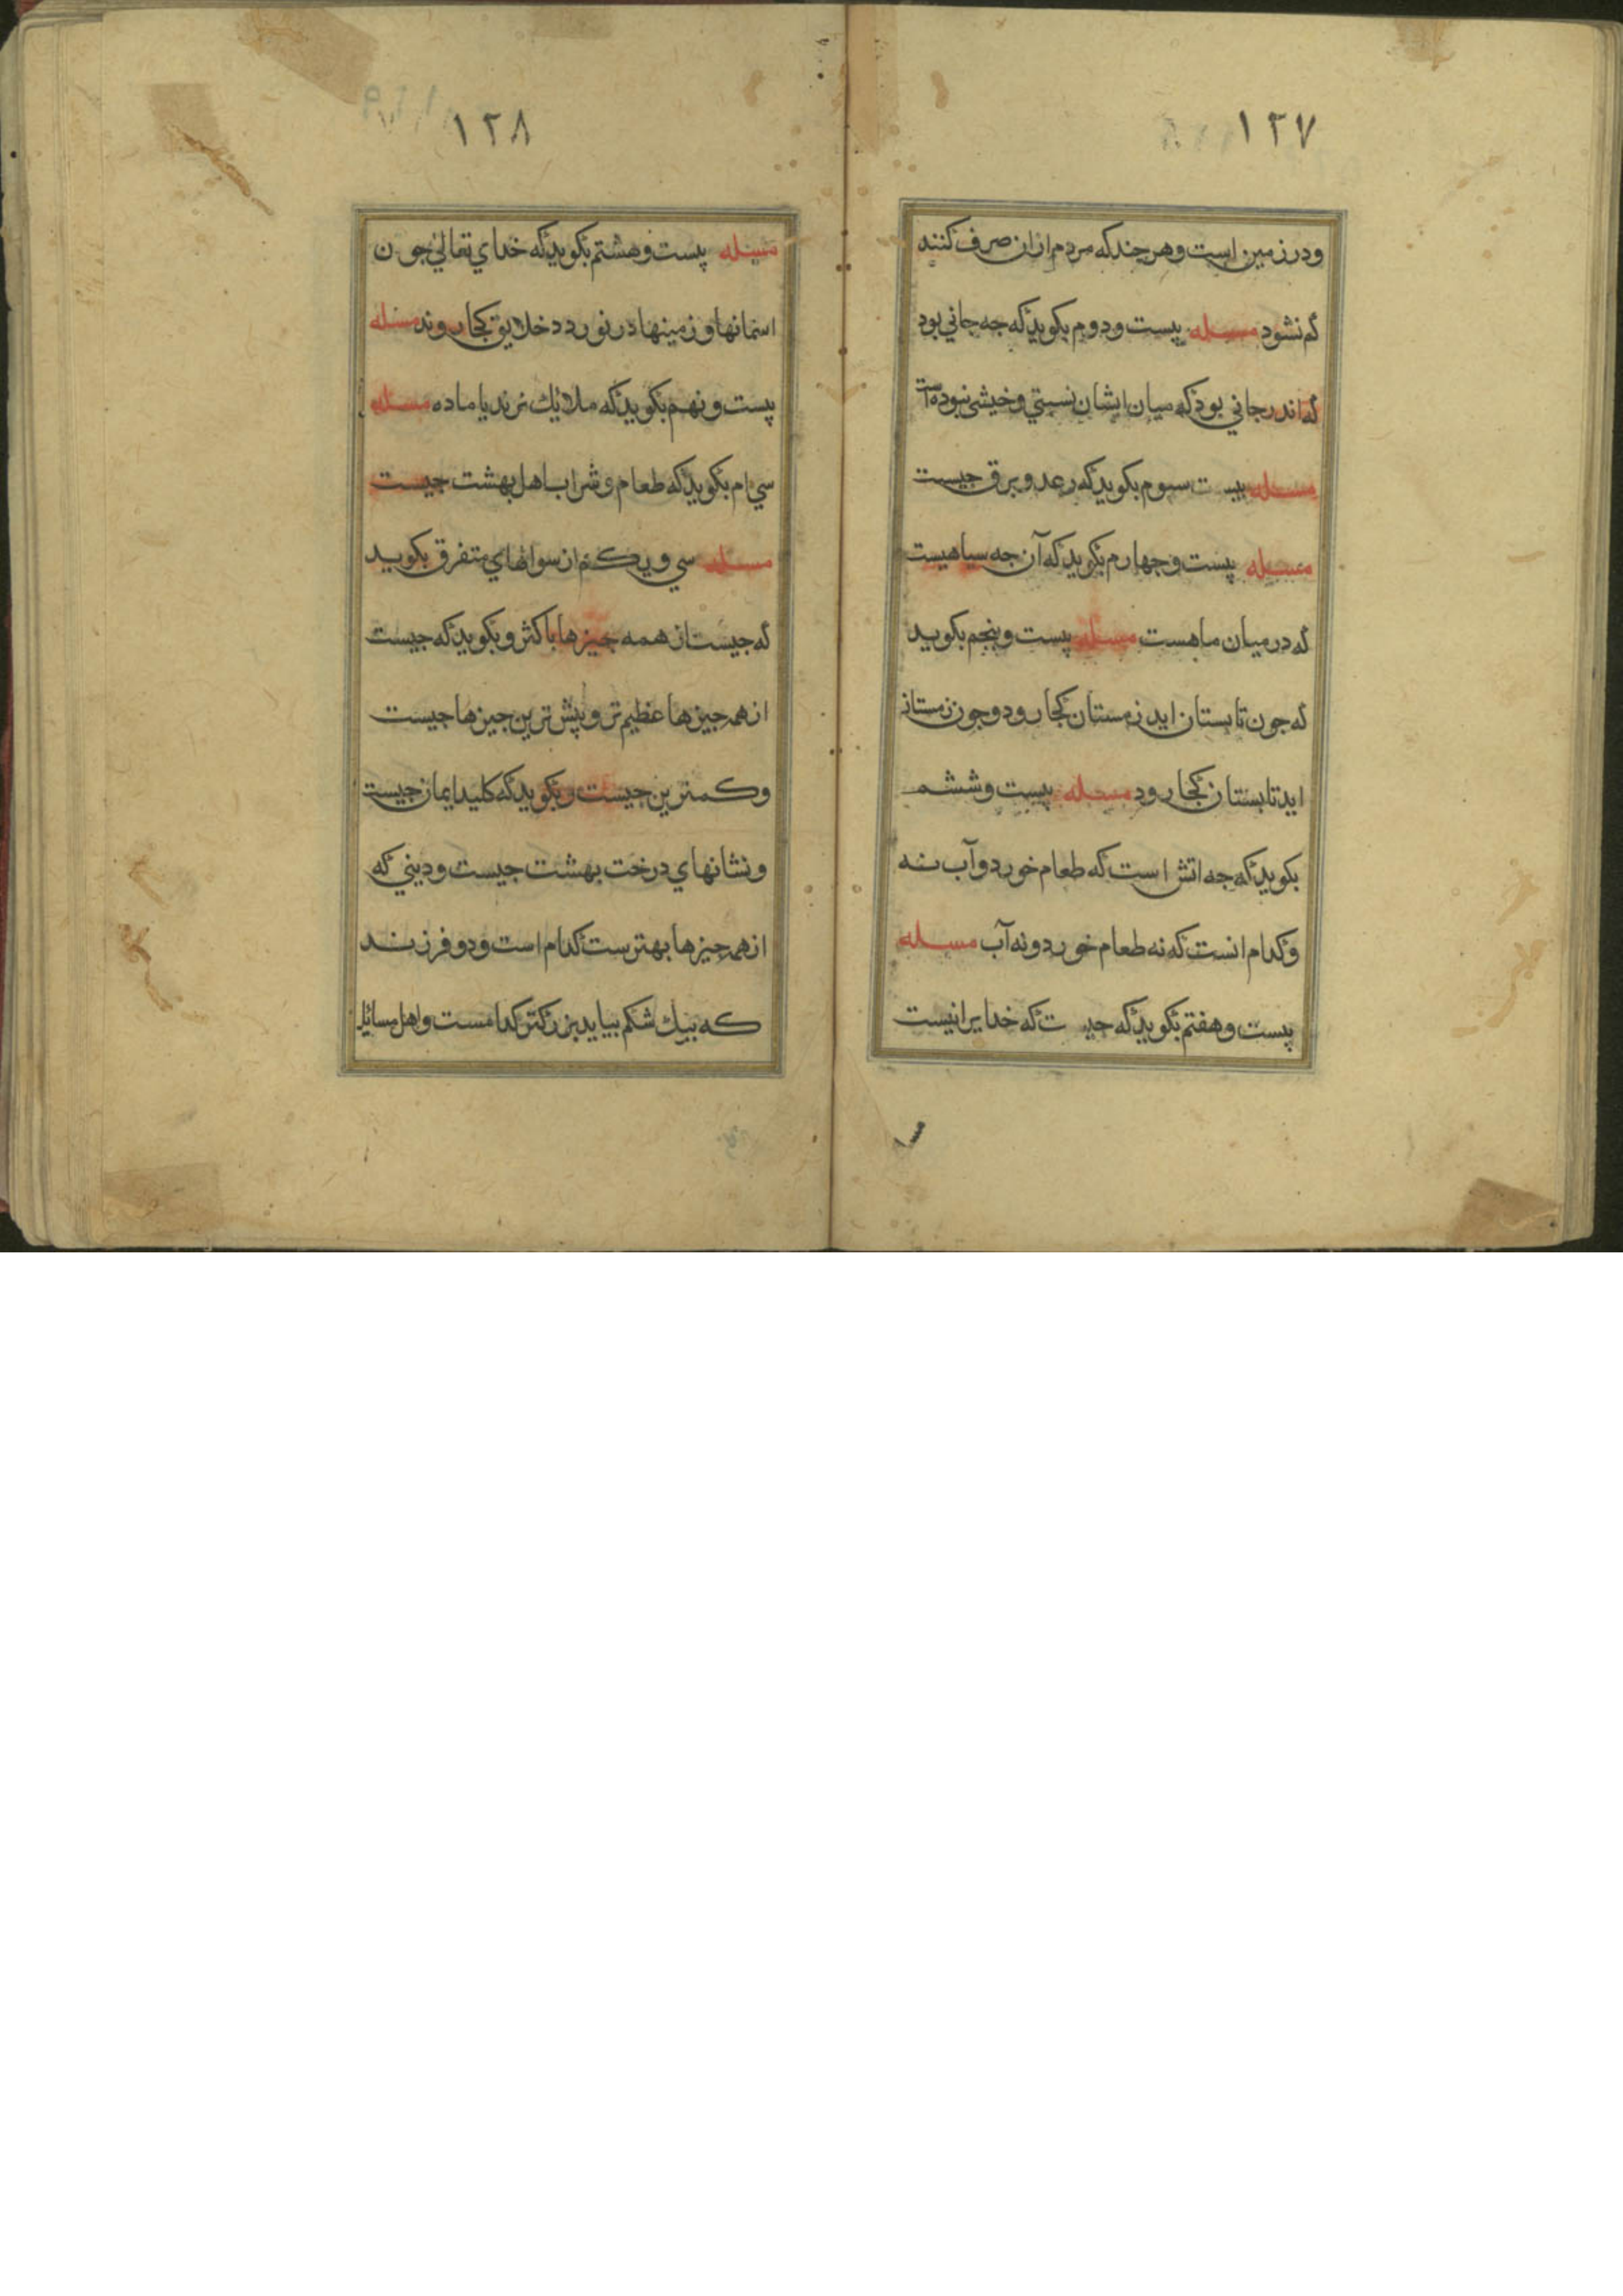 ۱۲۷
ودر زمین است وهر چند که مردم ازان صرف کنند
کم نشود مسئله بیست ودوم بکوید که جه جاني بود
که اندر جاني بود که میان ایشان نسبتي وخیشی نبوده است
مسئله بیست سیوم بکوید که رعد وبرق جیست
مسئله بیست وجهارم بکوید که آن جه سیاهیست
که در میان ماهست مسئله بیست وپنجم بکوید
که جون تابستان اید زمستان کجا رود وجون زمستان
اید تابستان کجا رود مسئله بیست وششم
بکوید که جه اتش است که طعام خورد وآب نه
وکدام انست که نه طعام خورد ونه آب مسئله
بیست وهفتم بکوید که جیست که خدایرا نیست
۱۲۸
مسئله بیست وهشتم بکوید که خداي تعالي جون
اسمانها وزمینها در نوردد خلایق کجا روند مسئله
بیست ونهم بکوید که ملائك نرند یا ماده مسئله
سي ام بکوید که طعام وشراب اهل بهشت جیست
مسئله سي ویکم از سوالهاي متفرق بکوید
که جیست از همه جیزها باکثر وبکوید که جیست
از همه جیزها عظیم تر وپیش ترین جیزها جیست
وکمترین جیست وبکوید که کلید ایمان جیست
ونشانهاي درخت بهشت جیست ودیني که
از همه جیزها بهترست کدام است ودو فرزند
که بیك شکم بیاید بزرکتر کدامست واهل مسائل